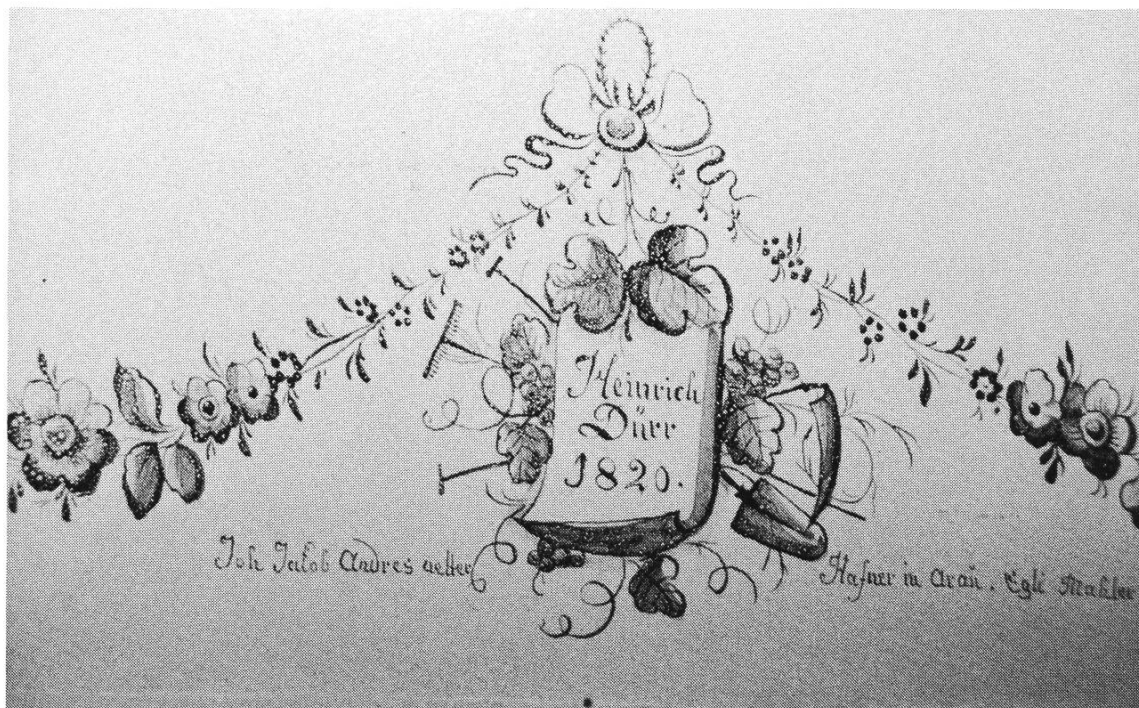 Heinrich
Dürr
1820.
Joh Jakob Andres aelter
Hafner in Arau. Egli Mahler